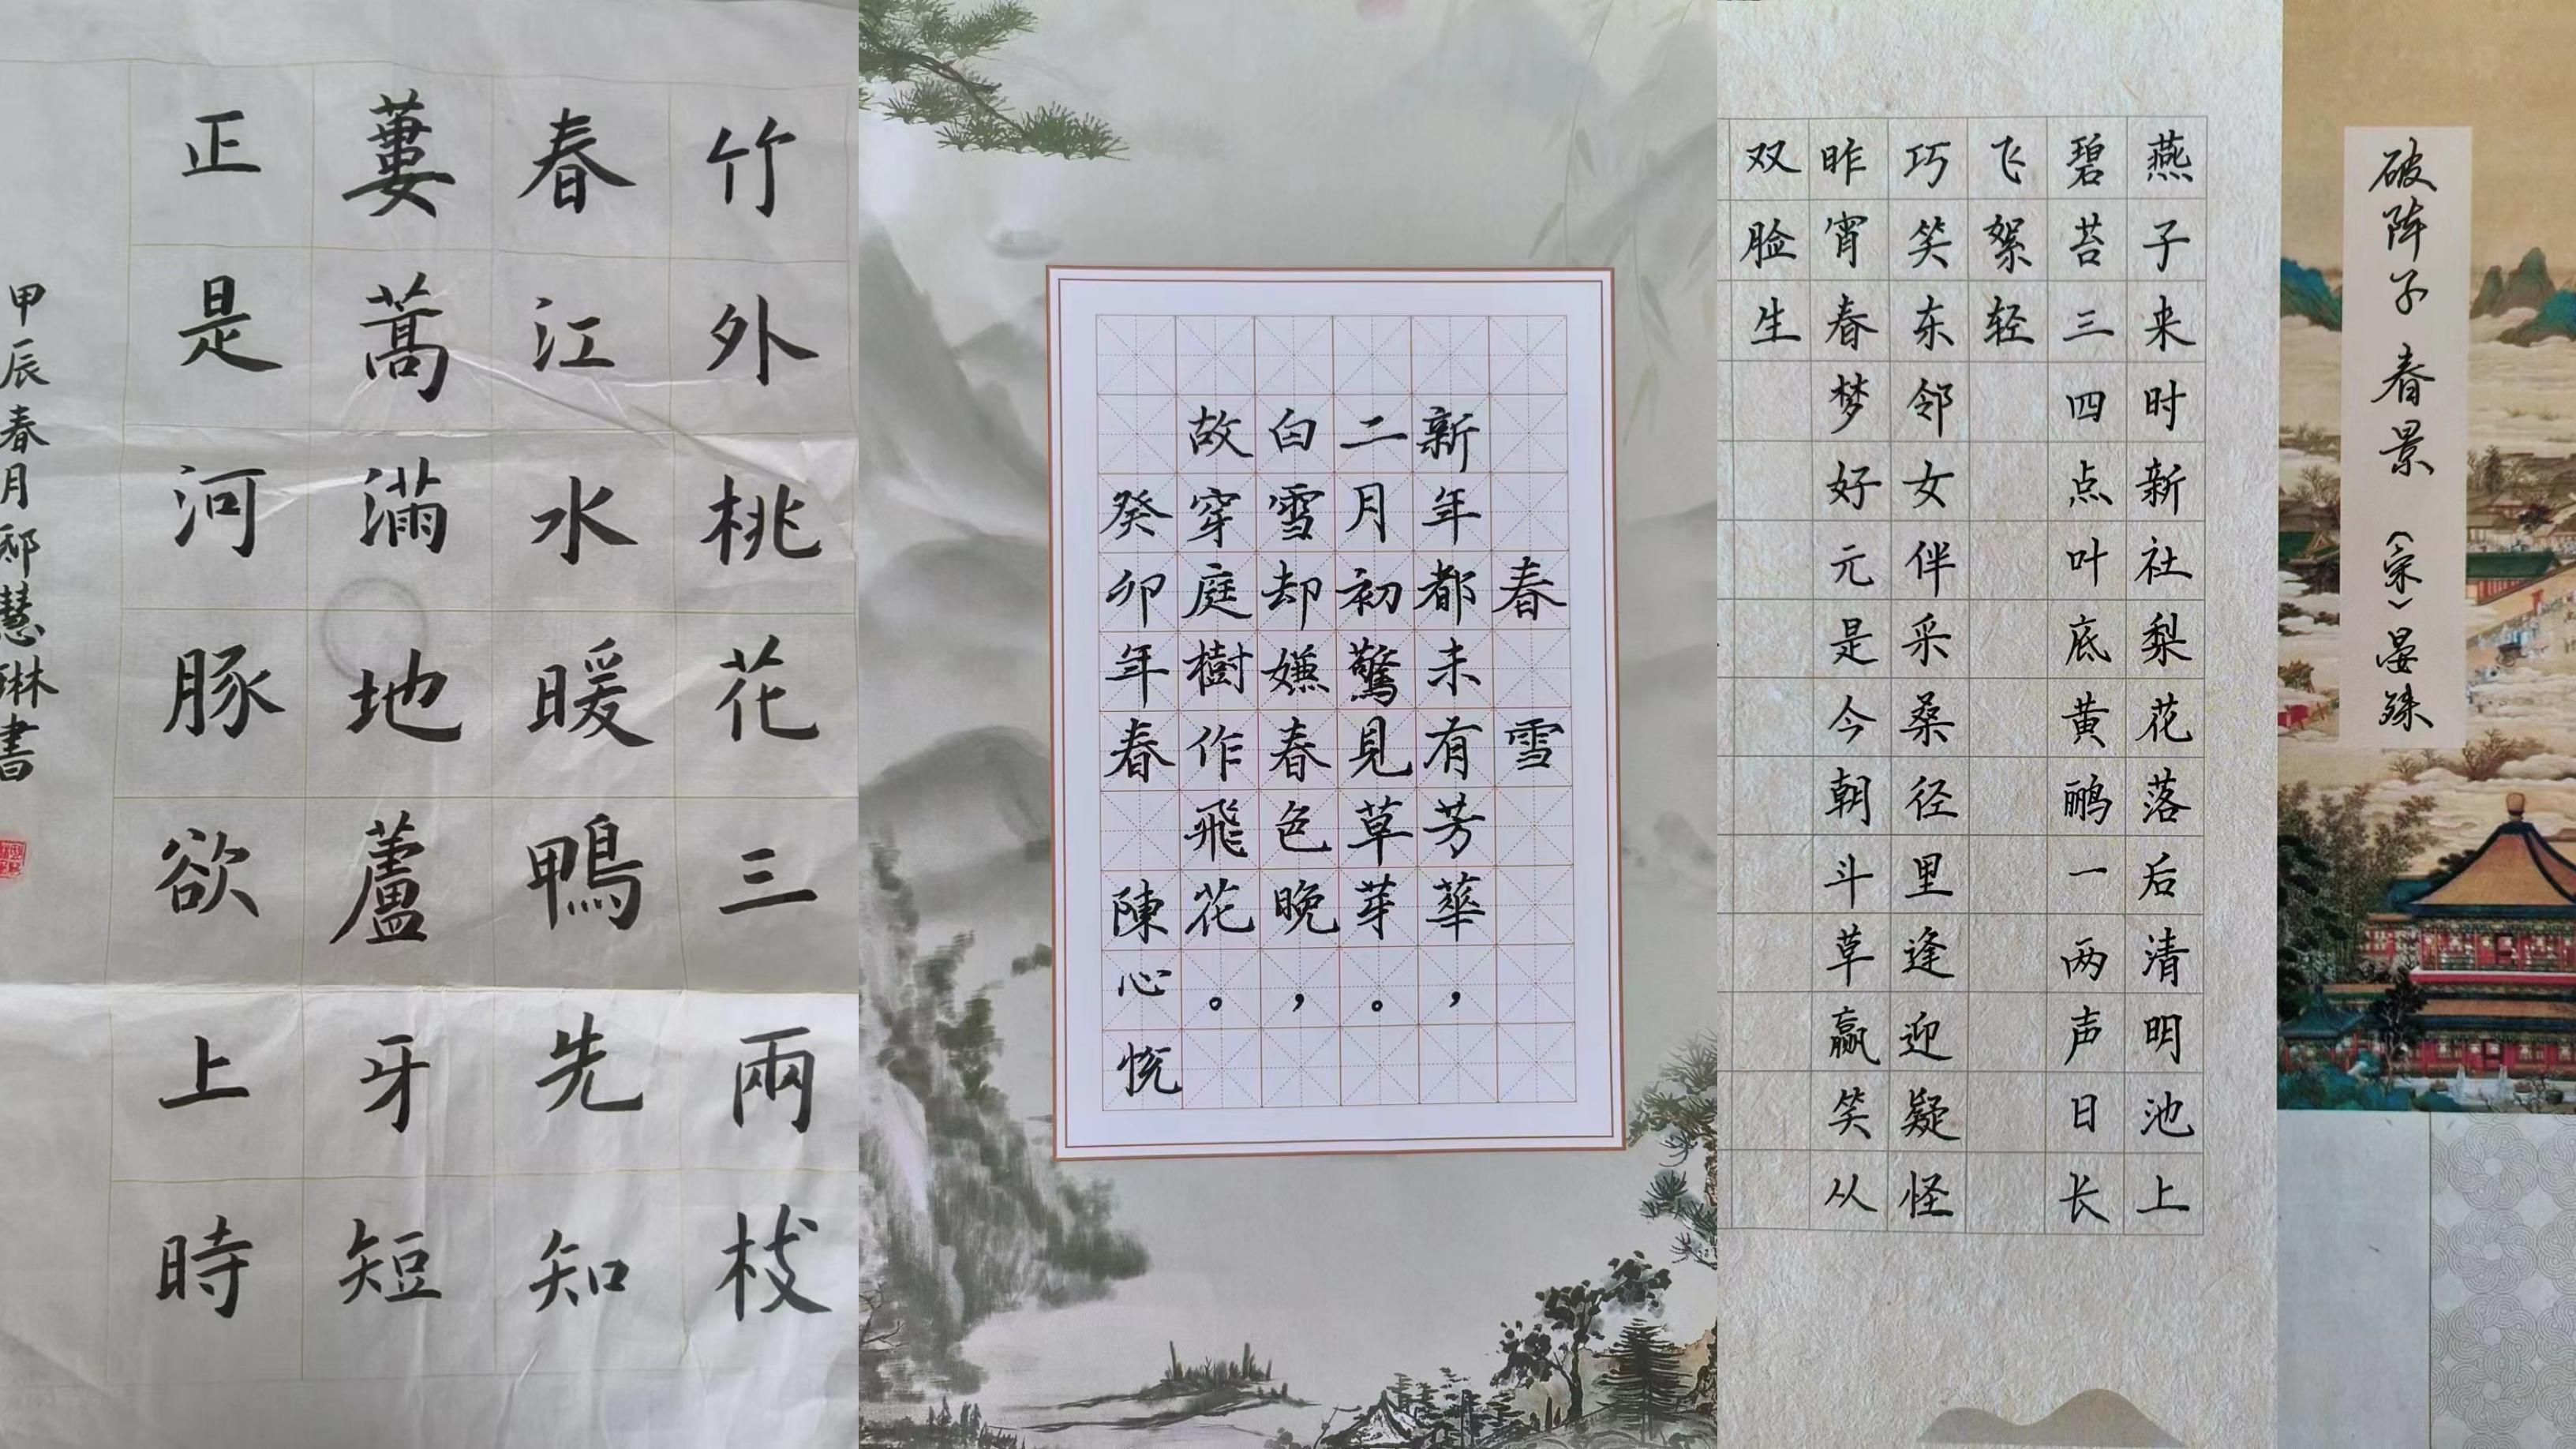 竹外桃花三兩枝
春江水暖鴨先知
蔞蒿滿地蘆牙短
正是河豚欲上時
甲辰春月邸慧琳書
春雪
新年都未有芳華，
二月初驚見草芽。
白雪却嫌春色晚，
故穿庭樹作飛花。
癸卯年春 陳心悦
破阵子 春景 （宋）晏殊
燕子来时新社梨花落后清明池上
碧苔三四点叶底黄鹂一两声日长
飞絮轻
巧笑东邻女伴采桑径里逢迎疑怪
昨宵春梦好元是今朝斗草赢笑从
双脸生